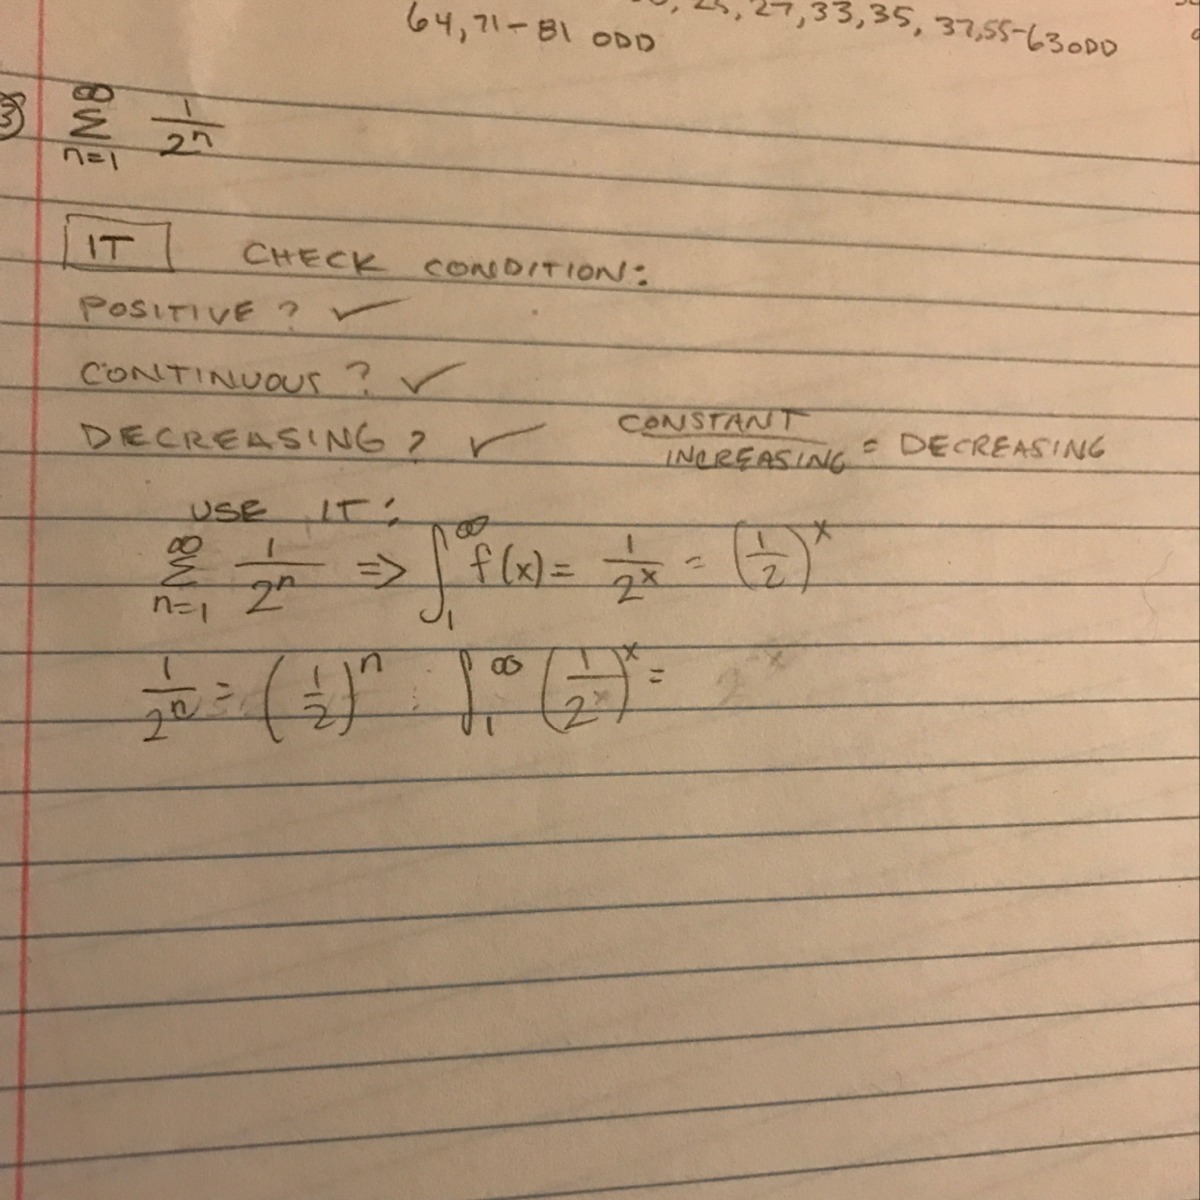 25, 27, 33, 35, 37, 55-63 ODD
64, 71-81 ODD
③ ∞ Σ n=1 1/2ⁿ
IT CHECK CONDITION:
POSITIVE? ✓
CONTINUOUS? ✓
DECREASING? ✓ CONSTANT/INCREASING = DECREASING
USE IT:
∞ Σ n=1 1/2ⁿ => ∫₁^∞ f(x) = 1/2ˣ = (1/2)ˣ
1/2ⁿ = (1/2)ⁿ ∫₁^∞ (1/2ˣ)ˣ =